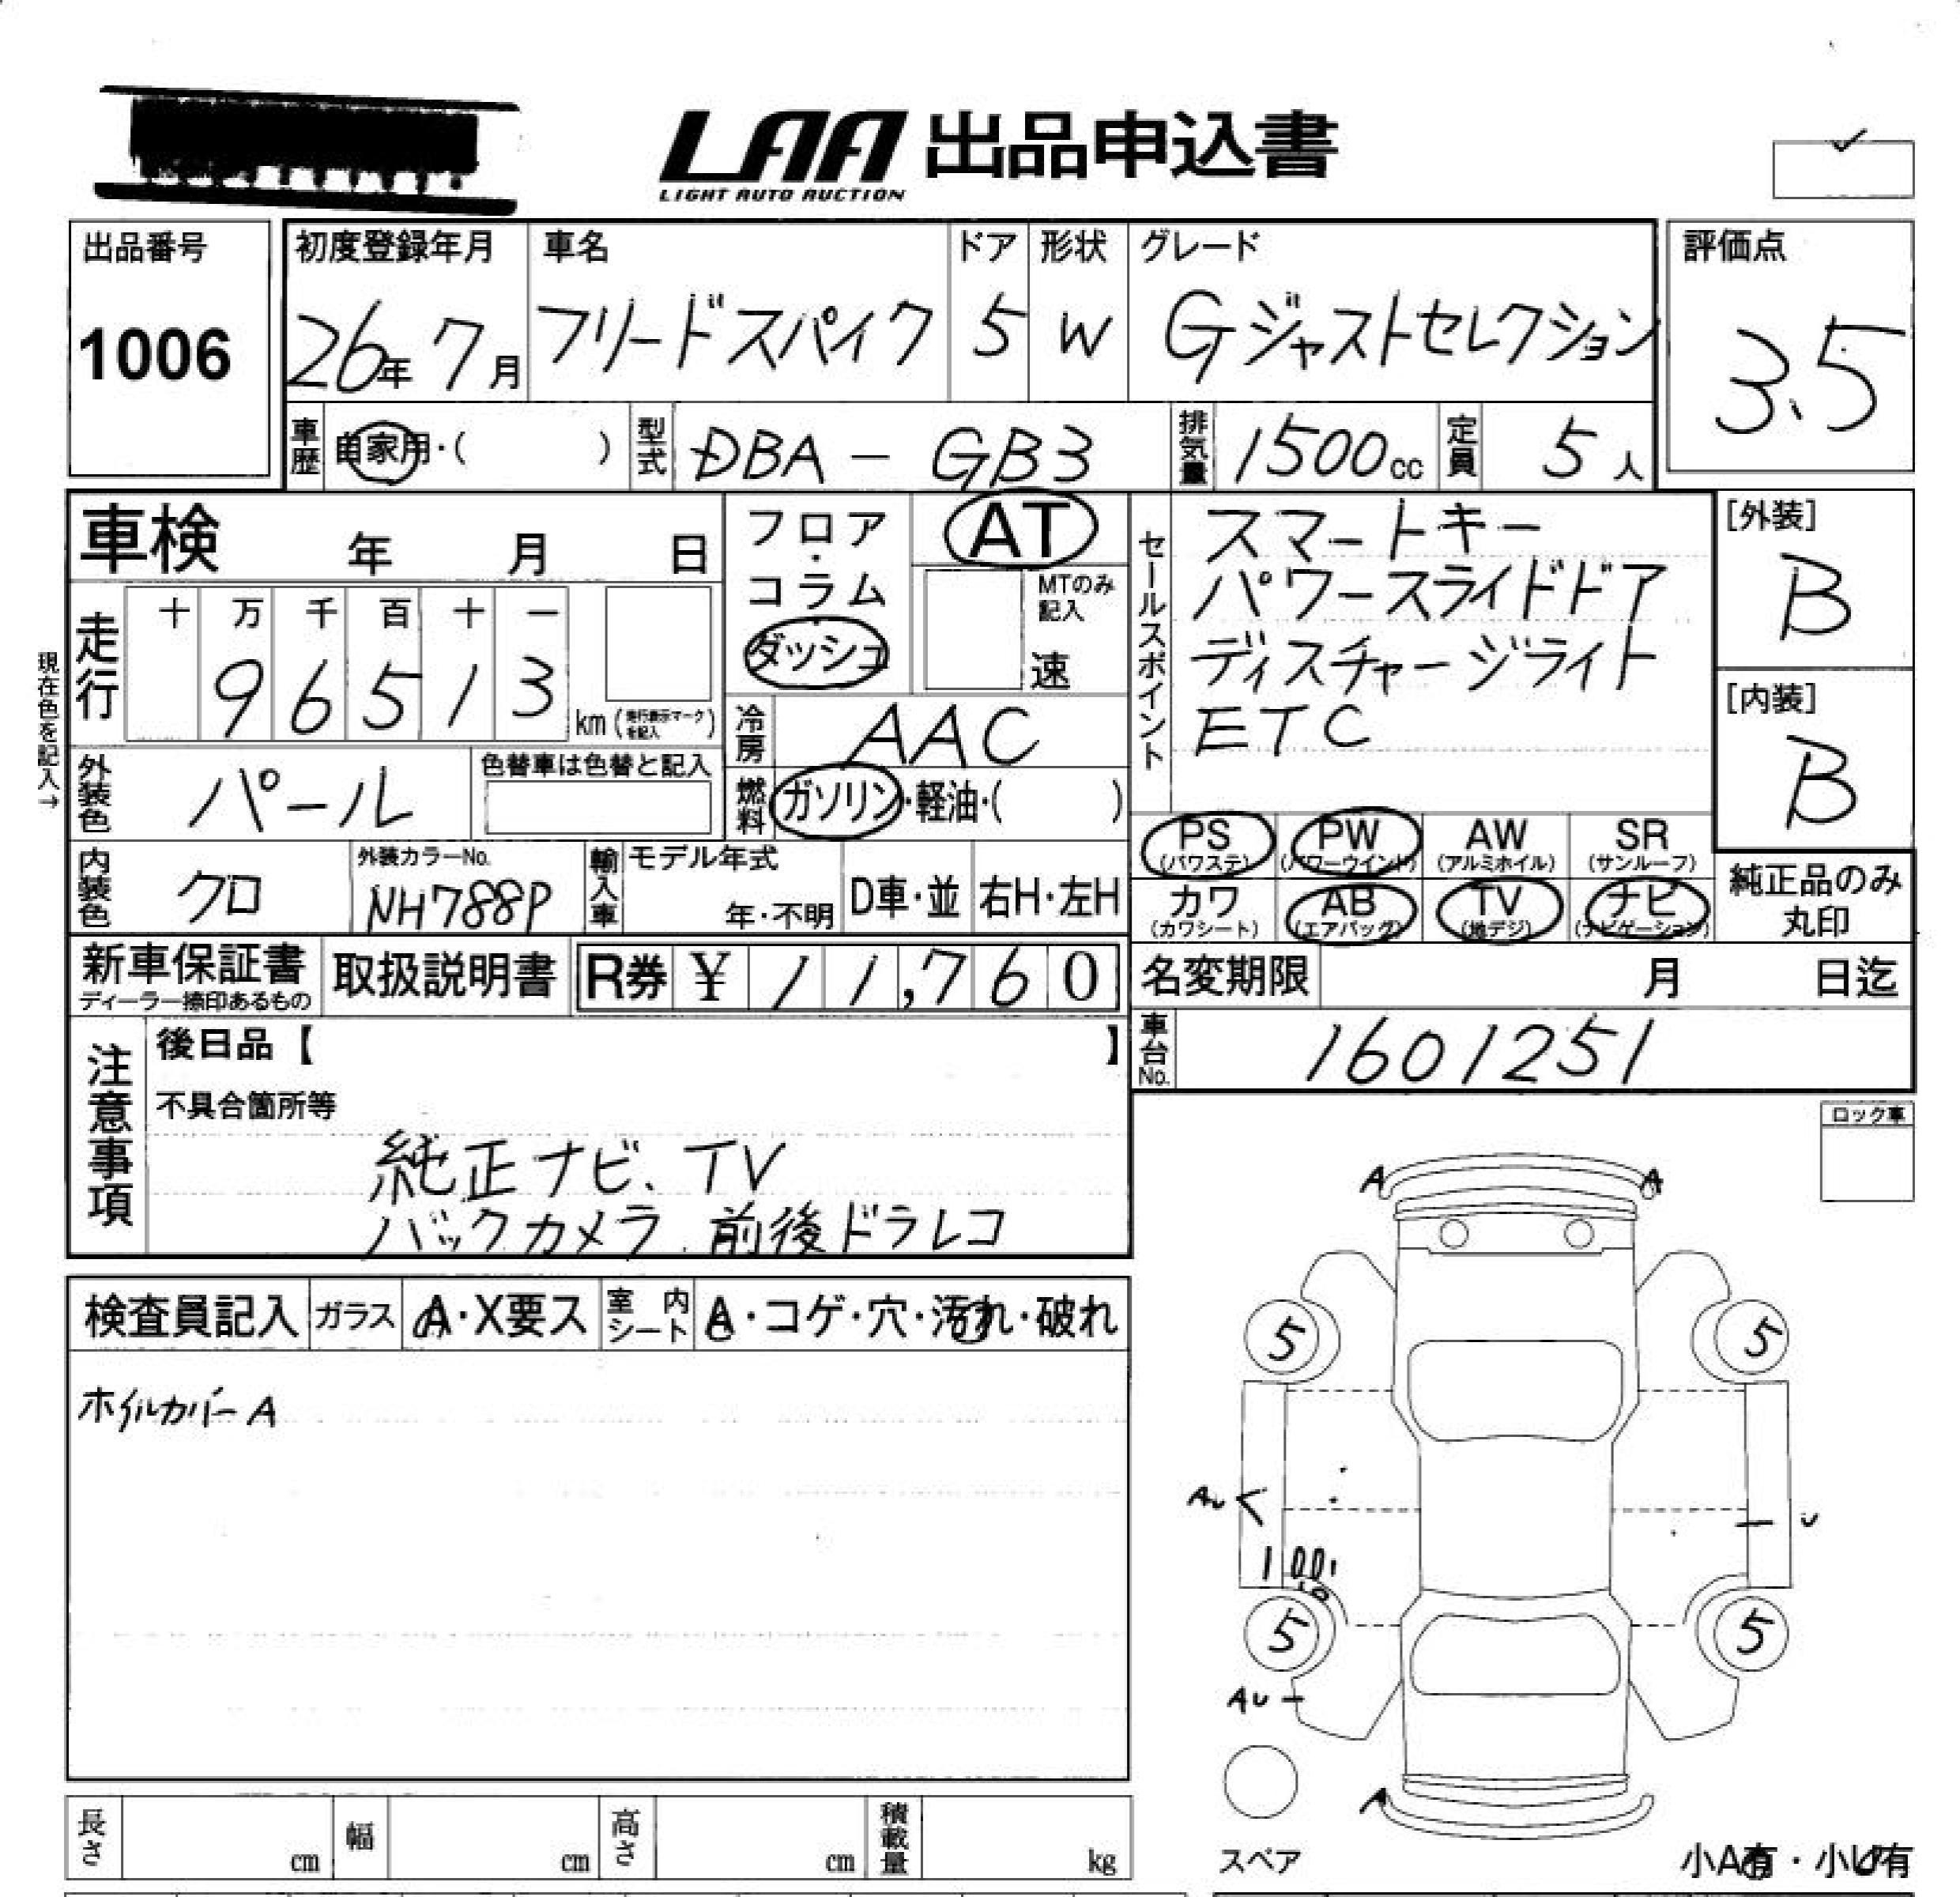 LAA 出品申込書
LIGHT AUTO AUCTION
出品番号
1006
初度登録年月
26年 7月
車名
フリードスパイク
ドア
5
形状
W
グレード
Gジャストセレクション
評価点
3.5
車歴
自家用・( )
型式
DBA - GB3
排気量
1500cc
定員
5人
車検 年 月 日
走行
十 万 千 百 十 一
9 6 5 1 3
km (走行表示マークを記入)
現在色を記入→
フロア・コラム
ダッシュ
AT
MTのみ記入
速
冷房
AAC
燃料
ガソリン・軽油・( )
セールスポイント
スマートキー
パワースライドドア
ディスチャージライト
ETC
[外装]
B
[内装]
B
外装色
パール
色替車は色替と記入
内装色
クロ
外装カラーNo.
NH788P
輸入車
モデル年式
年・不明
D車・並
右H・左H
PS
(パワステ)
PW
(パワーウインド)
AW
(アルミホイル)
SR
(サンルーフ)
カワ
(カワシート)
AB
(エアバッグ)
TV
(地デジ)
ナビ
(ナビゲーション)
純正品のみ
丸印
新車保証書
ディーラー捺印あるもの
取扱説明書
R券 ¥ 11,760
名変期限 月 日迄
車台No.
1601251
注意事項
後日品【 】
不具合箇所等
純正ナビ、TV
バックカメラ、前後ドラレコ
ロック車
検査員記入
ガラス
A・X要ス
室内シート
A・コゲ・穴・汚れ・破れ
ホイルカバーA
A A
5 5
AU
U
5 5
AU
A
スペア
小A有・小U有
長さ cm
幅 cm
高さ cm
積載量 kg